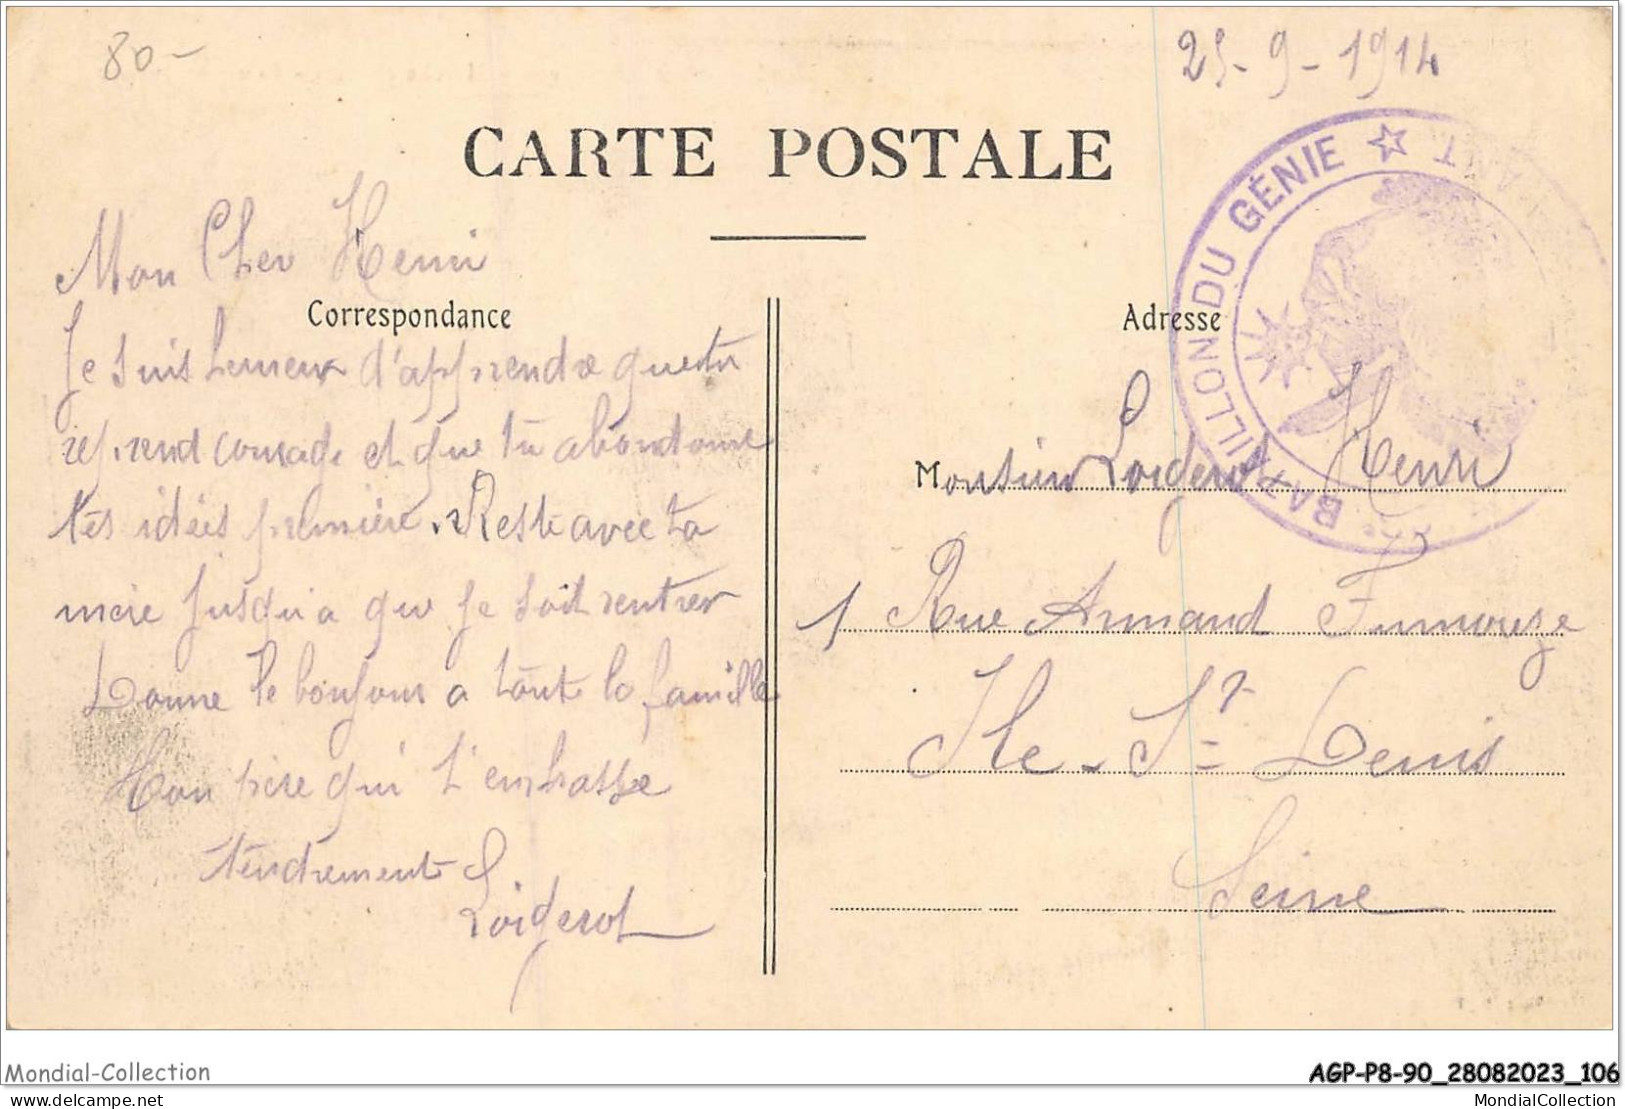 80-
25-9-1914
CARTE POSTALE
BATAILLON DU GÉNIE ☆
Mon Cher Henri
Correspondance
Adresse
Je suis heureux d'apprendre que tu
reprend courage et que tu abandonne
tes idées première. Reste avec ta
mère jusqu'a que je soit rentrer
Donne le bonjour a tout la famille
Ton père qui t'embrasse
tendrement
Loigerot
Monsieur Loigerot Henri
1 Rue Armand Fumouze
Ile-St-Denis
Seine
Mondial-Collection
AGP-P8-90_28082023_106
delcampe.net
MondialCollection